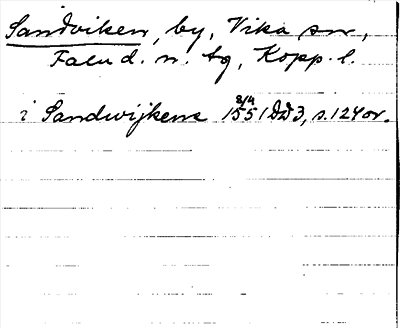 Sandviken, by, Vika sn,
Falu d. n. tg, Kopp. l.
i Sandwijkens 8/4 1551 DD 3, s. 124 or.